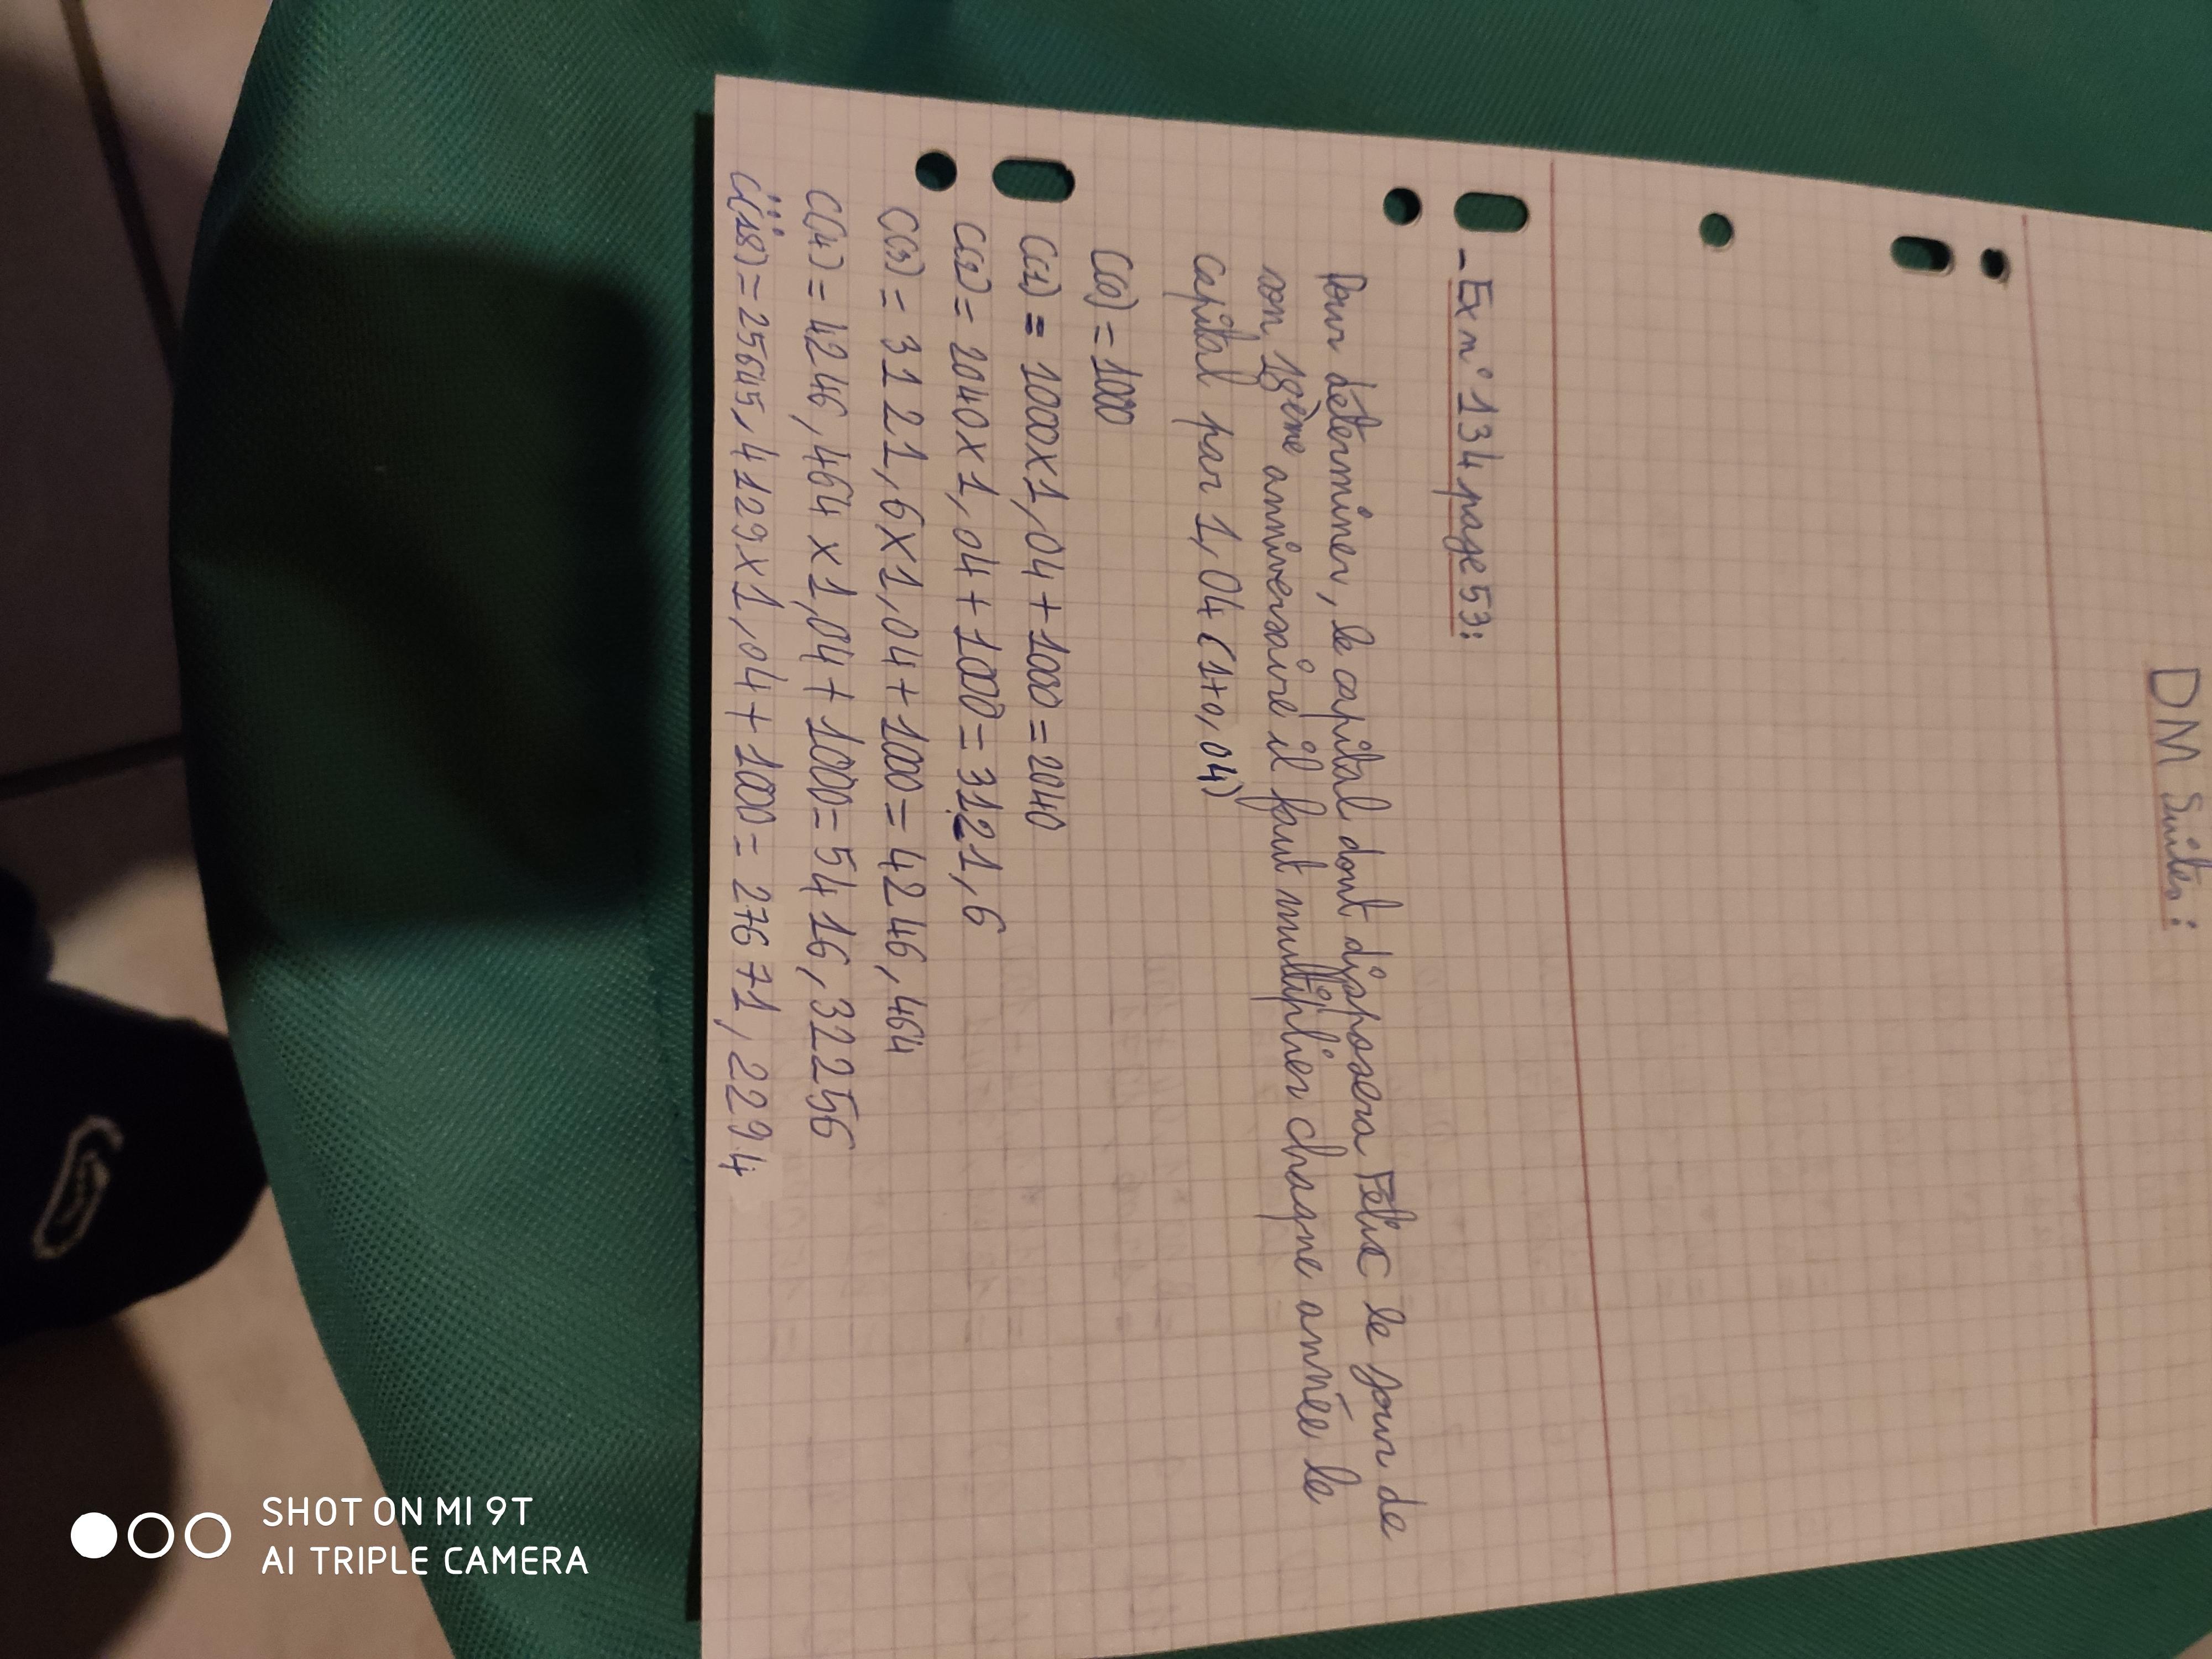 DM Suites :
- Ex n° 134 page 53 :
Pour déterminer, le capital dont disposera Félix le jour de
son 18ème anniversaire il faut multiplier chaque année le
capital par 1,04 (1+0,04)
C(0) = 1000
C(1) = 1000x1,04+1000 = 2040
C(2) = 2040x1,04+1000 = 3121,6
C(3) = 3121,6x1,04+1000 = 4246,464
C(4) = 4246,464x1,04+1000 = 5416,32256
C(18) = 25645,4129x1,04+1000 = 27671,2294
SHOT ON MI 9T
AI TRIPLE CAMERA